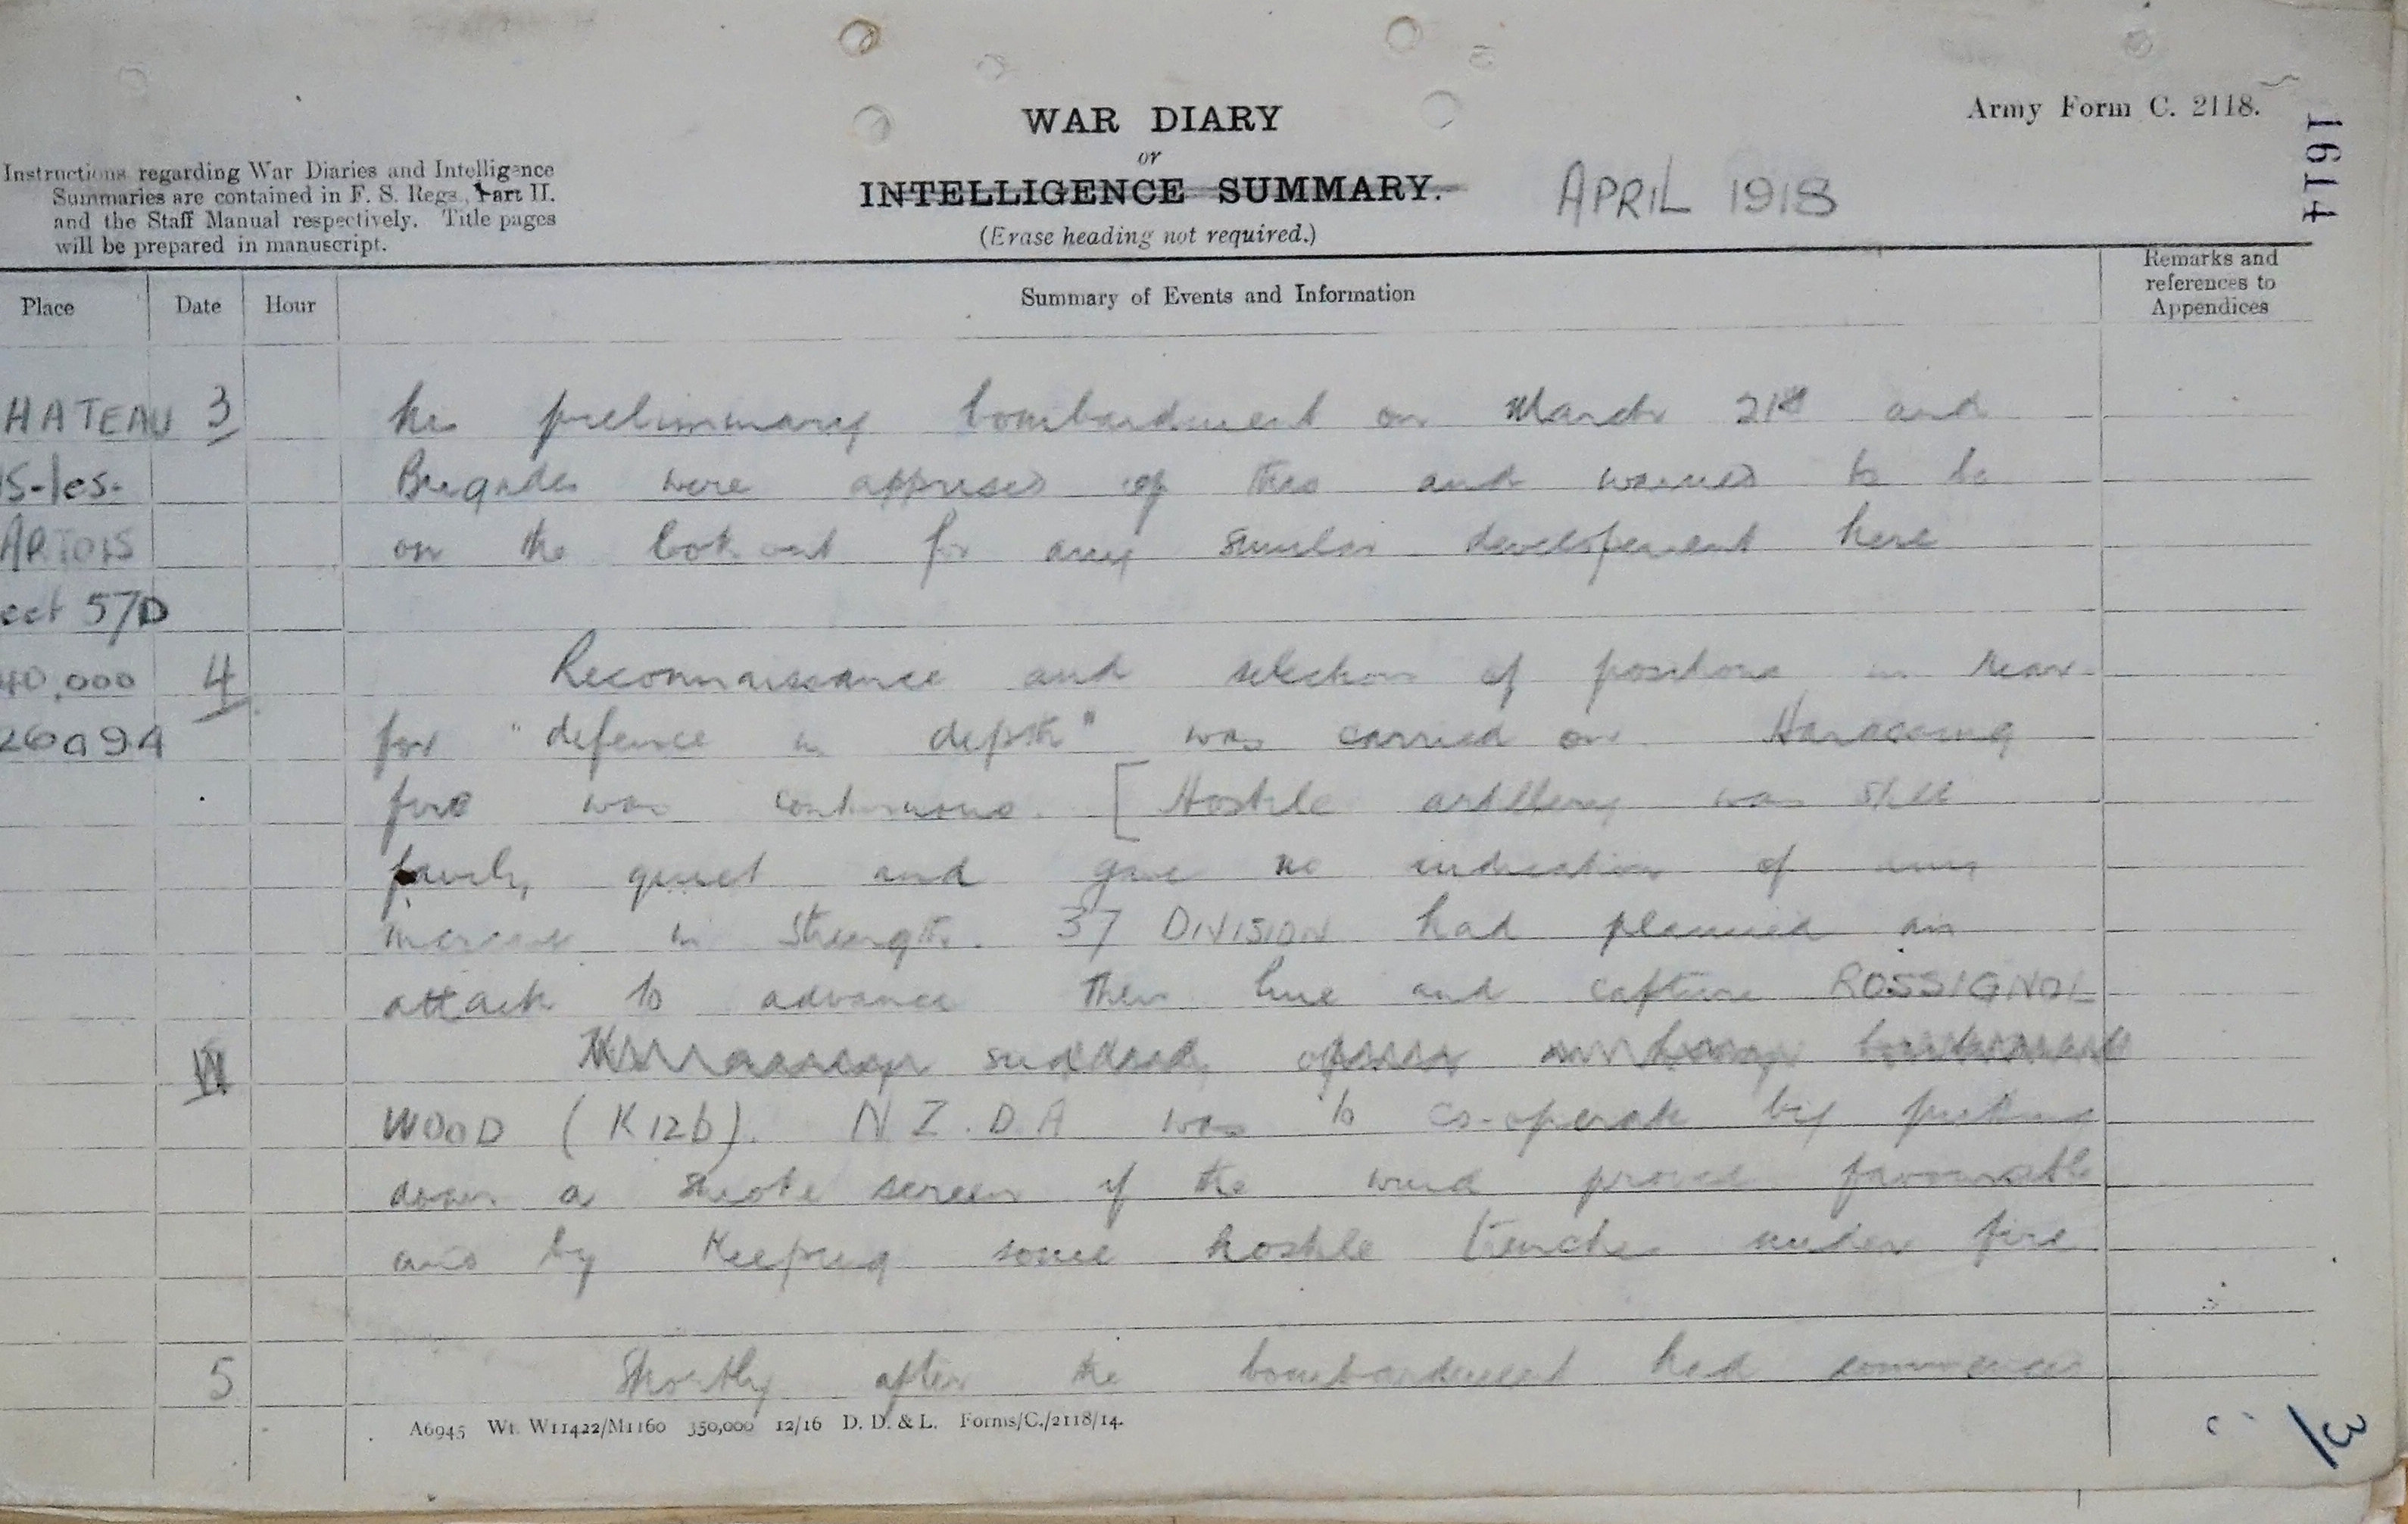 WAR DIARY
or
INTELLIGENCE SUMMARY.
(Erase heading not required.)
APRIL 1918
Army Form C. 2118.
1914
Instructions regarding War Diaries and Intelligence
Summaries are contained in F. S. Regs., Part II.
and the Staff Manual respectively. Title pages
will be prepared in manuscript.
Place Date Hour Summary of Events and Information Remarks and references to Appendices
HATEAU 3 his preliminary bombardment on March 21st and
IS-les- Brigades were apprised of this and warned to be
ARTOIS on the look out for any similar developement here
eet 57D
40,000 4 Reconnaissance and selection of positions in rear
26a94 for "defence in depth" was carried on. Harassing
fire was continuous. [Hostile artillery was still
fairly quiet and gave no indication of any
increase in strength. 37 DIVISION had planned an
attack to advance their line and capture ROSSIGNOL
WOOD (K12b). N.Z.D.A was to co-operate by putting
down a smoke screen if the wind proved favourable
and by keeping some hostile trenches under fire
5 Shortly after the bombardment had commenced
A6945 Wt. W11422/M1160 350,000 12/16 D. D. & L. Forms/C./2118/14.
3/